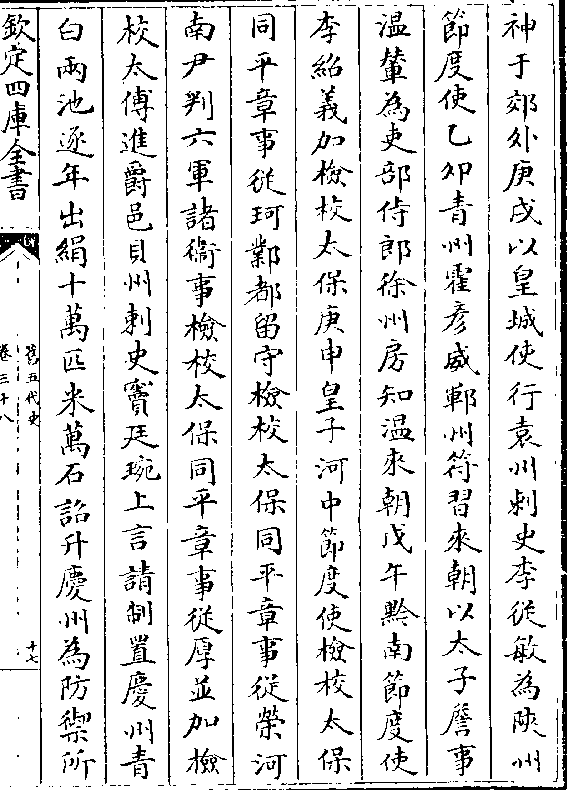 神于郊外庚戌以皇城使行袁州刺史李從敏為陝州
節度使乙卯青州霍彥威鄆州符習來朝以太子詹事
温輦為吏部侍郎徐州房知温來朝戊午黔南節度使
李紹義加檢校太保庚申皇子河中節度使檢校太保
同平章事從珂鄴都留守檢校太保同平章事從榮河
南尹判六軍諸衛事檢校太保同平章事從厚並加檢
校太傅進爵邑貝州刺史竇廷琬上言請制置慶州青
白兩池逐年出絹十萬匹米萬石詔升慶州為防禦所
欽定四庫全書
舊五代史
卷三十八
十七